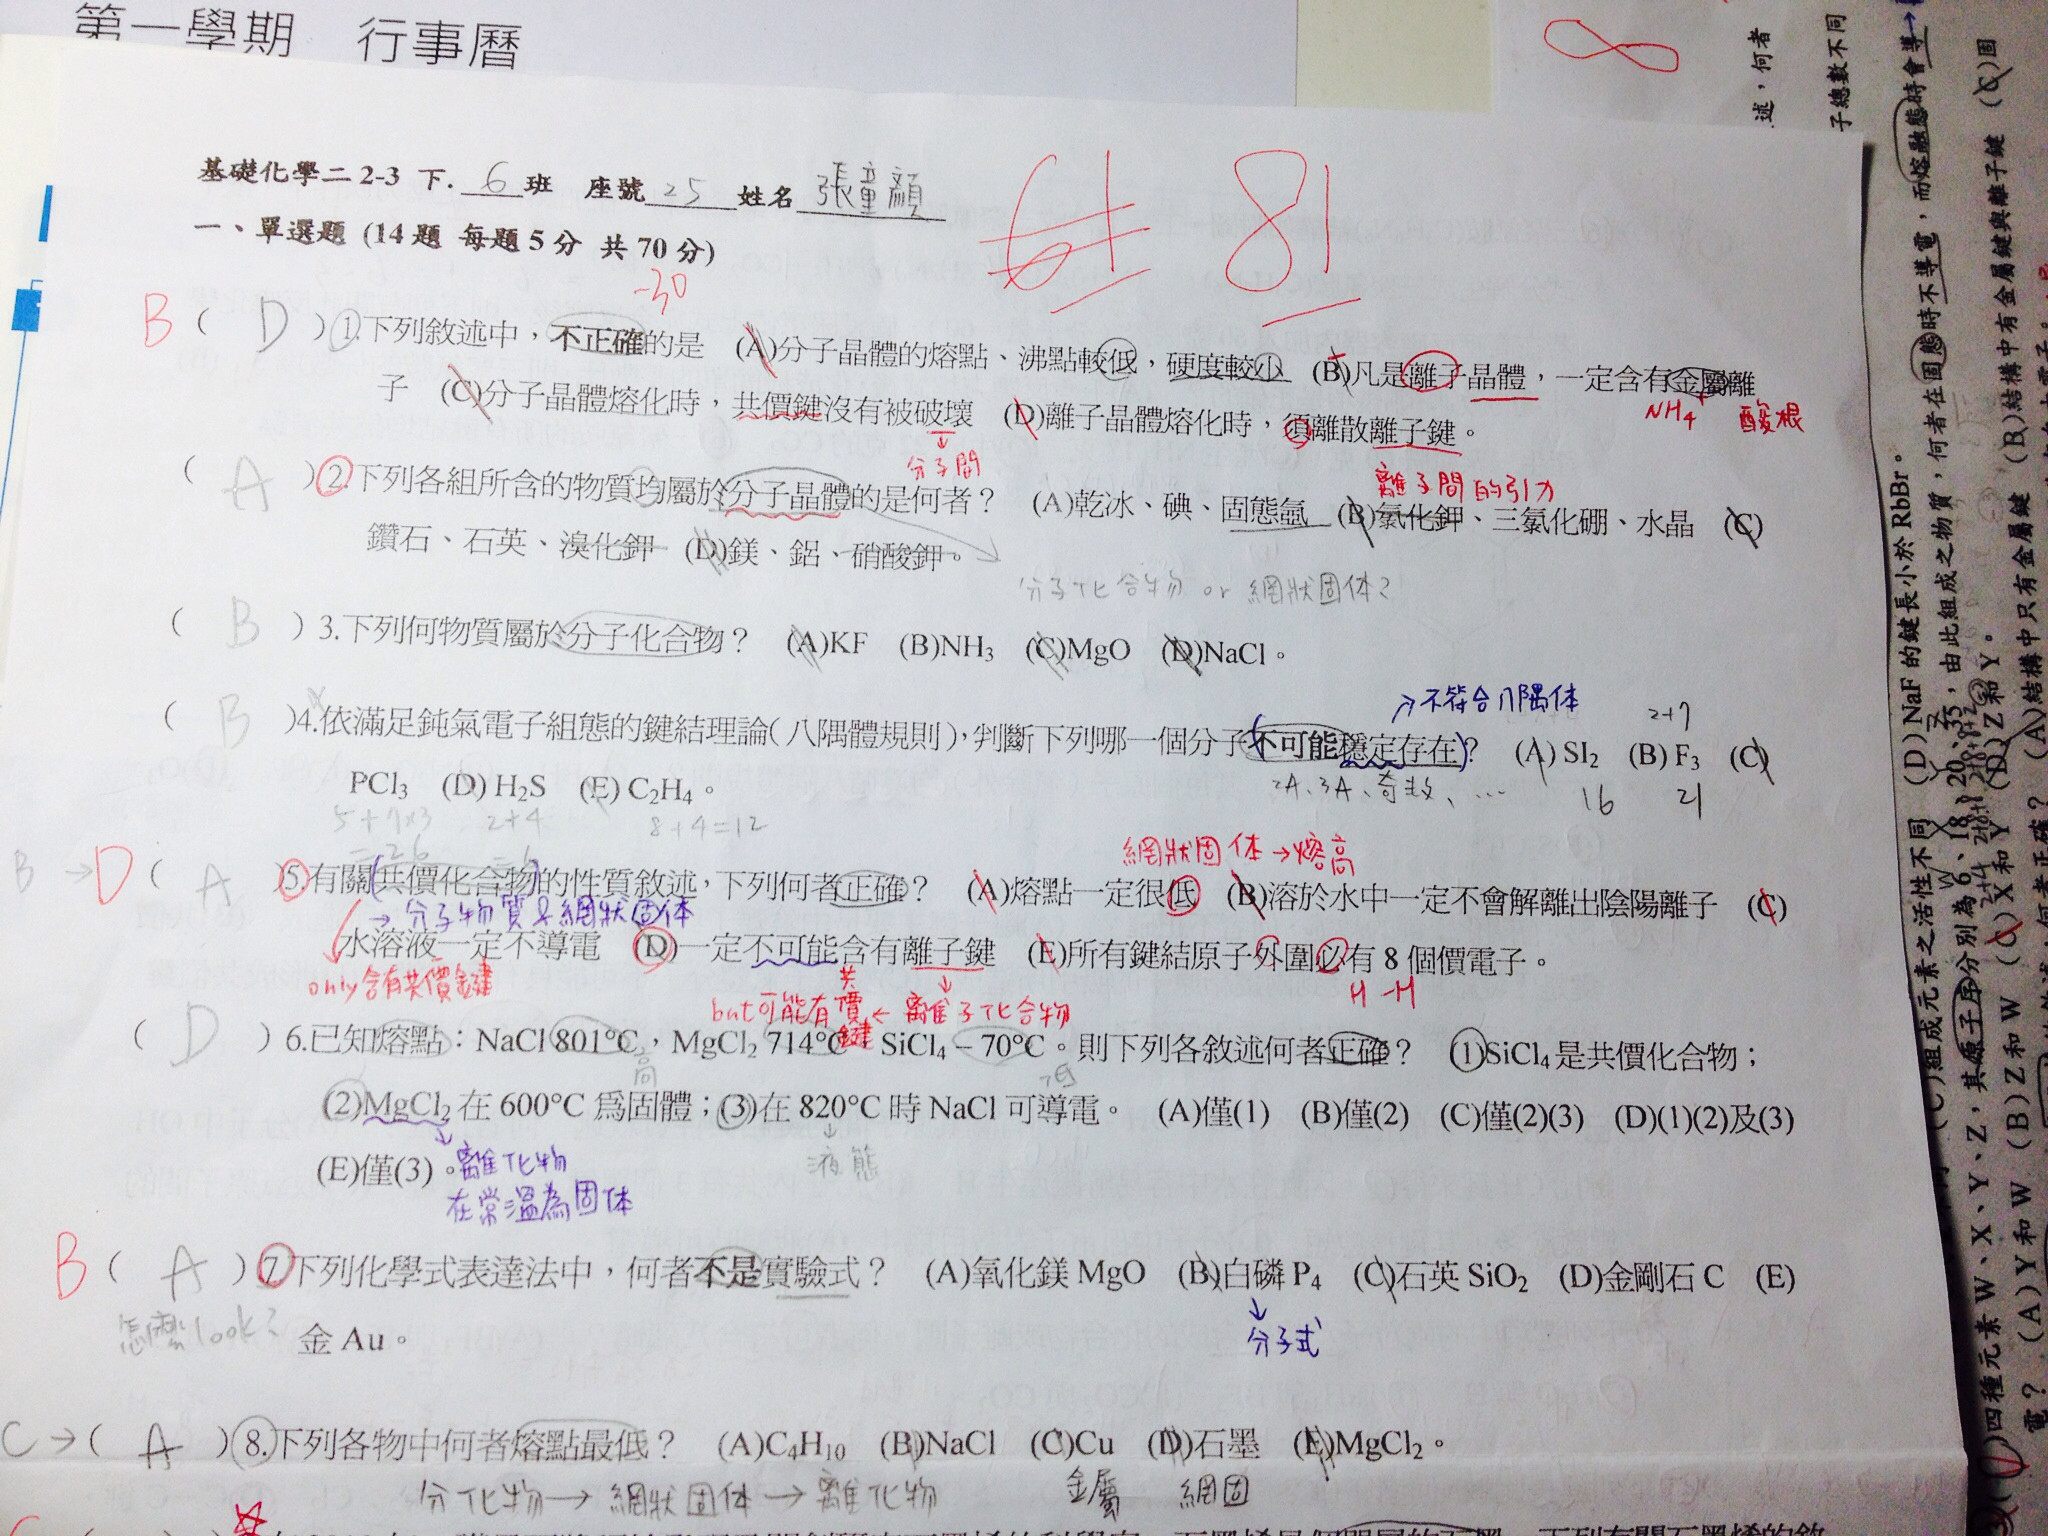 第一學期 行事曆
基礎化學二 2-3 下. 6 班 座號 25 姓名 張童顏
61 81
一、單選題 (14題 每題5分 共70分)
-30
B ( D ) 1.下列敘述中,不正確的是 (A)分子晶體的熔點、沸點較低,硬度較小 (B)凡是離子晶體,一定含有金屬離
子 (C)分子晶體熔化時,共價鍵沒有被破壞 (D)離子晶體熔化時,須離散離子鍵。
NH4+ 酸根
分子間
離子間的引力
( A ) 2.下列各組所含的物質均屬於分子晶體的是何者? (A)乾冰、碘、固態氬 (B)氯化鉀、三氯化硼、水晶 (C)
鑽石、石英、溴化鉀 (D)鎂、鋁、硝酸鉀。
分子化合物 or 網狀固体?
( B ) 3.下列何物質屬於分子化合物? (A)KF (B)NH3 (C)MgO (D)NaCl。
→不符合八隅体
2+7
( B )4.依滿足鈍氣電子組態的鍵結理論(八隅體規則),判斷下列哪一個分子不可能穩定存在? (A) SI2 (B) F3 (C)
PCl3 (D) H2S (E) C2H4。
2A、3A、奇数、... 16 21
5+7×3 2+4 8+4=12
=26 =6
網狀固体→熔高
B → D ( A )5.有關共價化合物的性質敘述,下列何者正確? (A)熔點一定很低 (B)溶於水中一定不會解離出陰陽離子 (C)
→分子物質&網狀固体
水溶液一定不導電 (D)一定不可能含有離子鍵 (E)所有鍵結原子外圍必有 8 個價電子。
only含有共價鍵
but可能有共價鍵 ← 離子化合物
H-H
( D ) 6.已知熔點:NaCl 801°C,MgCl2 714°C SiCl4 – 70°C。則下列各敘述何者正確? (1)SiCl4是共價化合物;
高 低
(2)MgCl2 在 600°C 為固體;(3)在 820°C 時 NaCl 可導電。 (A)僅(1) (B)僅(2) (C)僅(2)(3) (D)(1)(2)及(3)
(E)僅(3)。
離化物
在常溫為固体
液態
B ( A ) 7.下列化學式表達法中,何者不是實驗式? (A)氧化鎂 MgO (B)白磷 P4 (C)石英 SiO2 (D)金剛石 C (E)
金 Au。
怎麼look?
分子式
C → ( A ) 8.下列各物中何者熔點最低? (A)C4H10 (B)NaCl (C)Cu (D)石墨 (E)MgCl2。
分化物→網狀固体→離化物 金屬 網固
述,何者
子總數不同
(D) NaF 的鍵長小於 RbBr。
,何者在固態時不導電,而熔融態時會導
(C)組成元素之活性不同
四種元素 W、X、Y、Z,其原子序分別為 6、18、20、35,由此組成之物質
電? (A)Y和W (B)Z和W (C)X和Y (D)Z和Y。
(A)結構中只有金屬鍵 (B)結構中有金屬鍵與離子鍵 (C)固